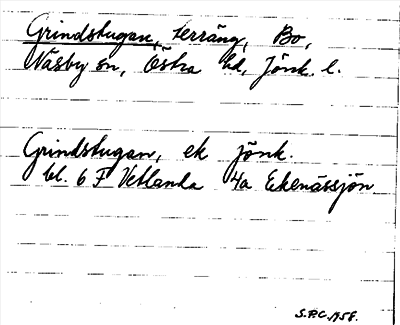 Grindstugan, terräng, Bo,
Näsby sn, Östra hd, Jönk. l.
Grindstugan, ek jönk.
bl. 6 F Vetlanda 4a Ekenässjön
S.P.C. 1958.